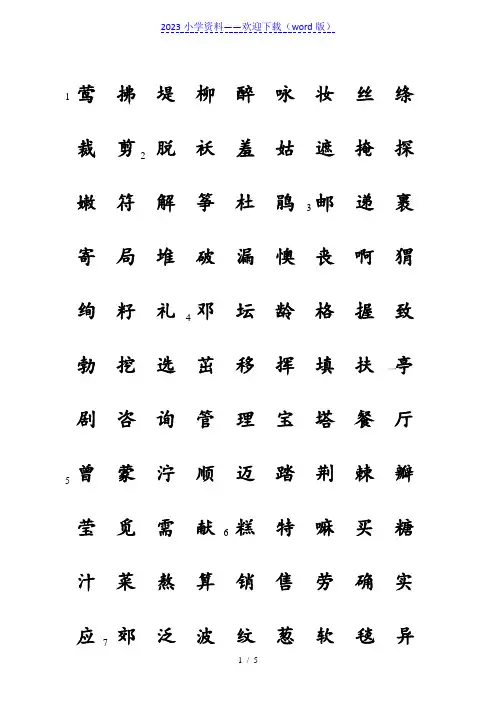 2023小学资料——欢迎下载（word版）
1莺 拂 堤 柳 醉 咏 妆 丝 绦
裁 剪 2脱 袄 羞 姑 遮 掩 探
嫩 符 解 筝 杜 鹃 3邮 递 裹
寄 局 堆 破 漏 懊 丧 啊 猬
绚 籽 礼 4邓 坛 龄 格 握 致
勃 挖 选 茁 移 挥 填 扶 亭
剧 咨 询 管 理 宝 塔 餐 厅
5曾 蒙 泞 顺 迈 踏 荆 棘 瓣
莹 觅 需 献 6糕 特 嘛 买 糖
汁 菜 熬 算 销 售 劳 确 实
应 7郊 泛 波 纹 葱 软 毯 异
1 / 5